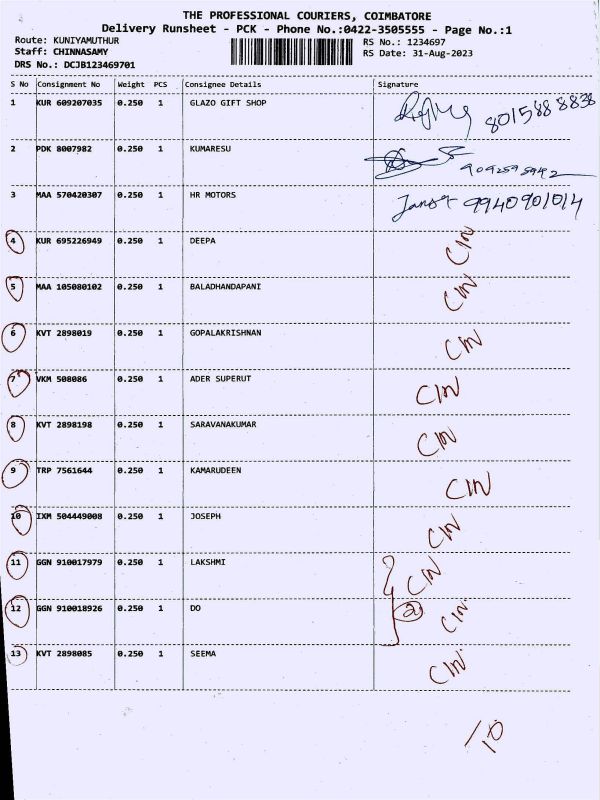 THE PROFESSIONAL COURIERS, COIMBATORE
Delivery Runsheet - PCK - Phone No.:0422-3505555 - Page No.:1
Route: KUNIYAMUTHUR RS No.: 1234697
Staff: CHINNASAMY RS Date: 31-Aug-2023
DRS No.: DCJB123469701
S No Consignment No Weight PCS Consignee Details Signature
1 KUR 609207035 0.250 1 GLAZO GIFT SHOP 8015888838
2 PDK 8007982 0.250 1 KUMARESU 9092595942
3 MAA 570420307 0.250 1 HR MOTORS 9940901014
4 KUR 695226949 0.250 1 DEEPA CIN
5 MAA 105080102 0.250 1 BALADHANDAPANI CIN
6 KVT 2898019 0.250 1 GOPALAKRISHNAN CIN
7 VKM 508086 0.250 1 ADER SUPERUT CIN
8 KVT 2898198 0.250 1 SARAVANAKUMAR CIN
9 TRP 7561644 0.250 1 KAMARUDEEN CIN
10 IXM 504449008 0.250 1 JOSEPH CIN
11 GGN 910017979 0.250 1 LAKSHMI CIN
12 GGN 910018926 0.250 1 DO 2 CIN
13 KVT 2898085 0.250 1 SEEMA CIN
10